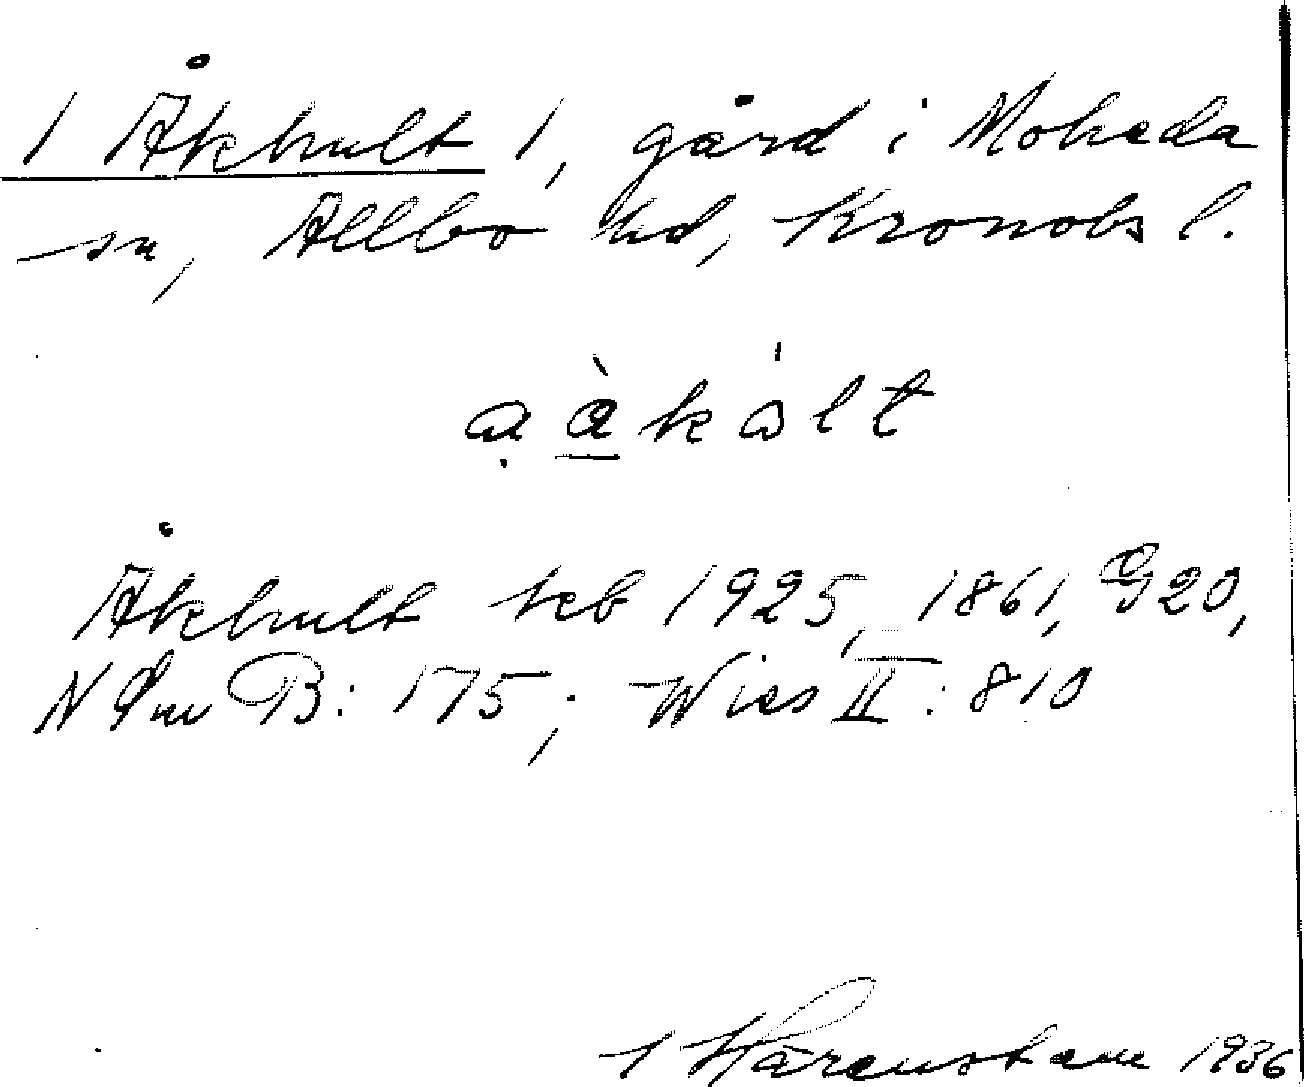 / Åkhult /, gård i Moheda
sn, Allbo hd, Kronobs l.
ạàkålt
Åkhult kb 1925, 1861, G20,
NSm B: 175; Wies II: 810
Härenstam 1936